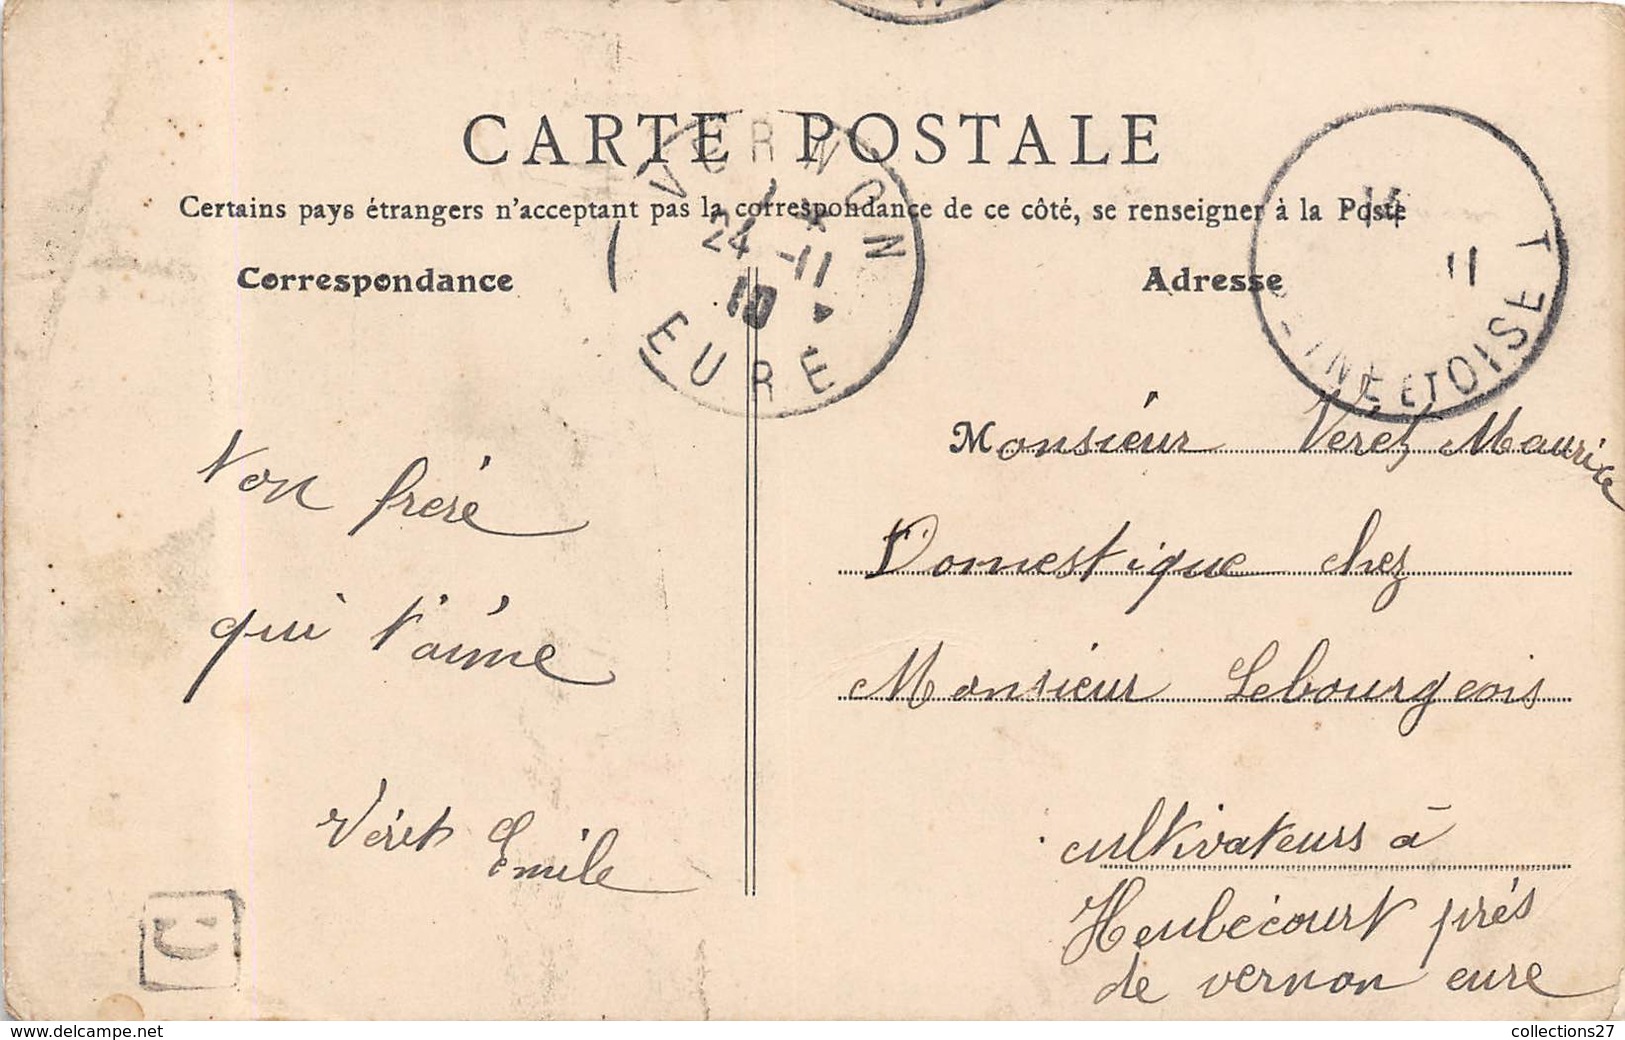 CARTE POSTALE
Certains pays étrangers n'acceptent pas la correspondance de ce côté, se renseigner à la Poste
Correspondance
Adresse
VERNON
24 -11
10
EURE
11
ET OISE
Ton frère
qui t'aime
Véret Emile
Monsieur Veret Maurice
Domestique chez
Monsieur Lebourgeois
cultivateurs à
Heubécourt près
de vernon eure
D
collections27